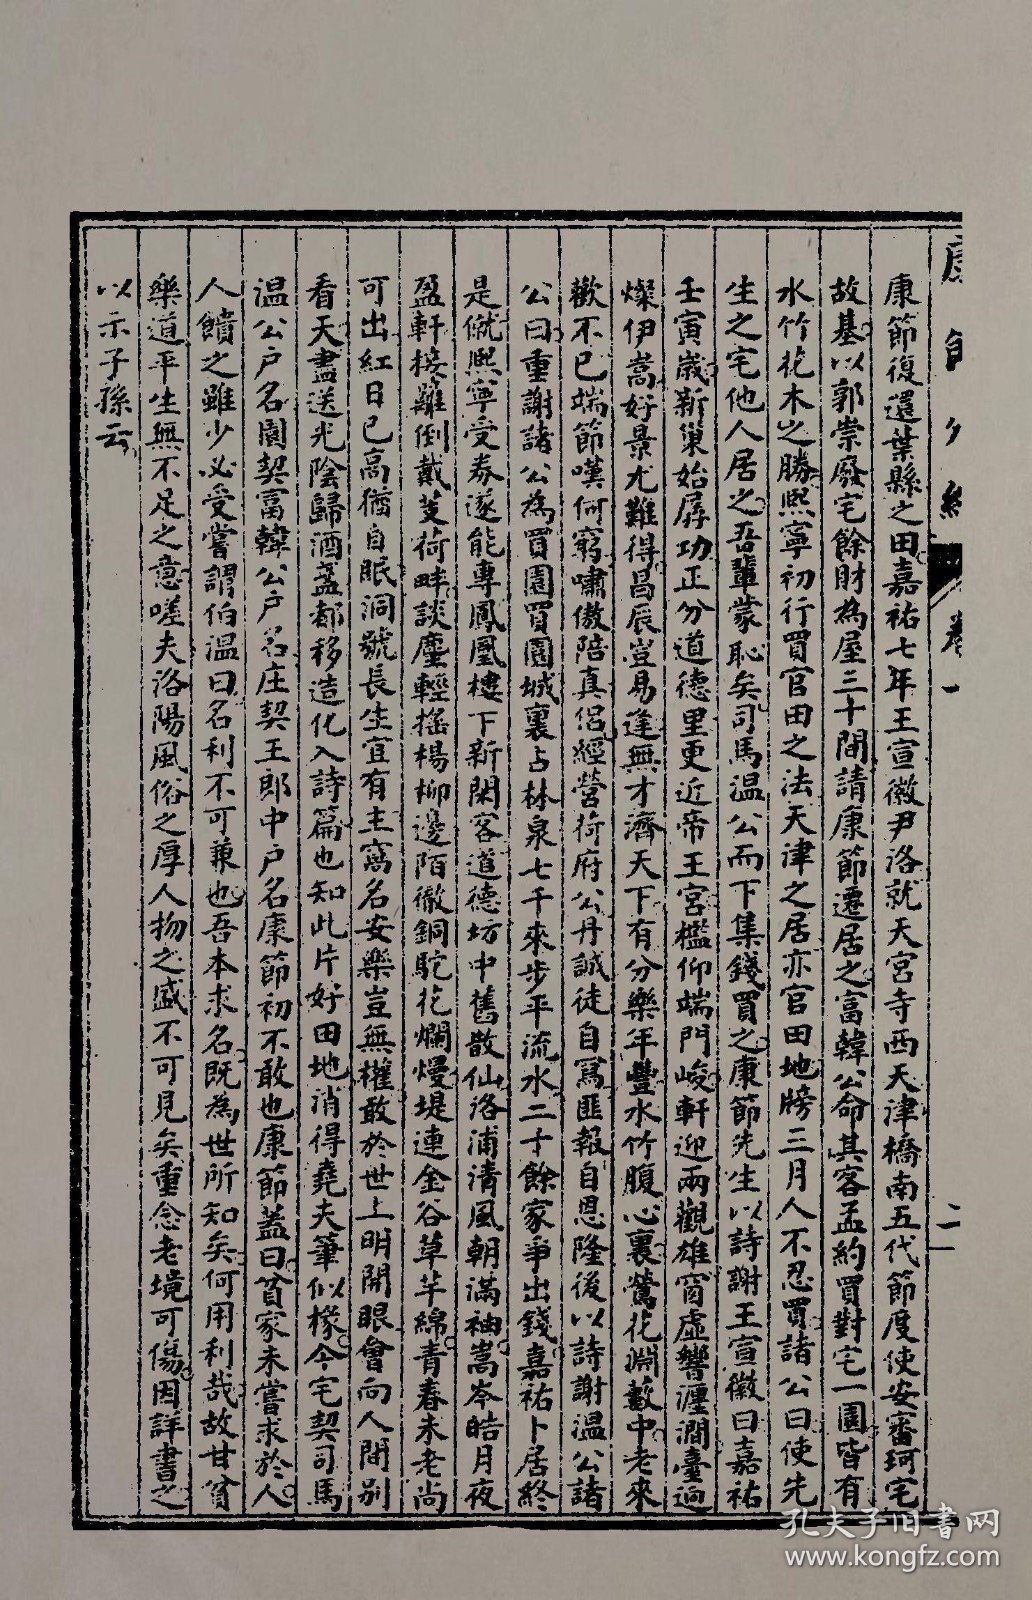 康節復還葉縣之田嘉祐七年王宣徽尹洛就天宮寺西天津橋南五代節度使安審珂宅
故基以郭崇廢宅餘財為屋三十間請康節遷居之富韓公命其客孟約買對宅一園皆有
水竹花木之勝熙寧初行買官田之法天津之居亦官田地牓三月人不忍買諸公曰使先
生之宅他人居之吾輩蒙恥矣司馬温公而下集錢買之康節先生以詩謝王宣徽曰嘉祐
壬寅歲新巢始孱功正分道德里更近帝王宮檻仰端門峻軒迎兩觀雄窗虛響瀍澗臺迥
燦伊嵩好景尤難得昌辰豈易逢無才濟天下有分樂年豐水竹腹心裏鶯花淵藪中老來
歡不已端節嘆何窮嘯傲陪真侶經營荷府公丹誠徒自寫匪報自恩隆後以詩謝温公諸
公曰重謝諸公為買園買園城裏占林泉七千來步平流水二十餘家爭出錢嘉祐卜居終
是僦熙寧受券遂能專鳳凰樓下新閑客道德坊中舊散仙洛浦清風朝滿袖嵩岑皓月夜
盈軒接䍦倒戴芰荷畔談麈輕搖楊柳邊陌徹銅駝花爛熳堤連金谷草芊綿青春未老尚
可出紅日已高猶自眠洞號長生宜有主窩名安樂豈無權敢於世上明開眼會向人間別
看天盡送光陰歸酒盞都移造化入詩篇也知此片好田地消得堯夫筆似椽今宅契司馬
温公户名園契富韓公户名庄契王郎中户名康節初不敢也康節蓋曰貧家未嘗求於人
人饋之雖少必受嘗謂伯温曰名利不可兼也吾本求名既為世所知矣何用利哉故甘貧
樂道平生無不足之意嗟夫洛陽風俗之厚人物之盛不可見矣重念老境可傷因詳書之
以示子孫云
卷一
二
孔夫子旧書网
www.kongfz.com